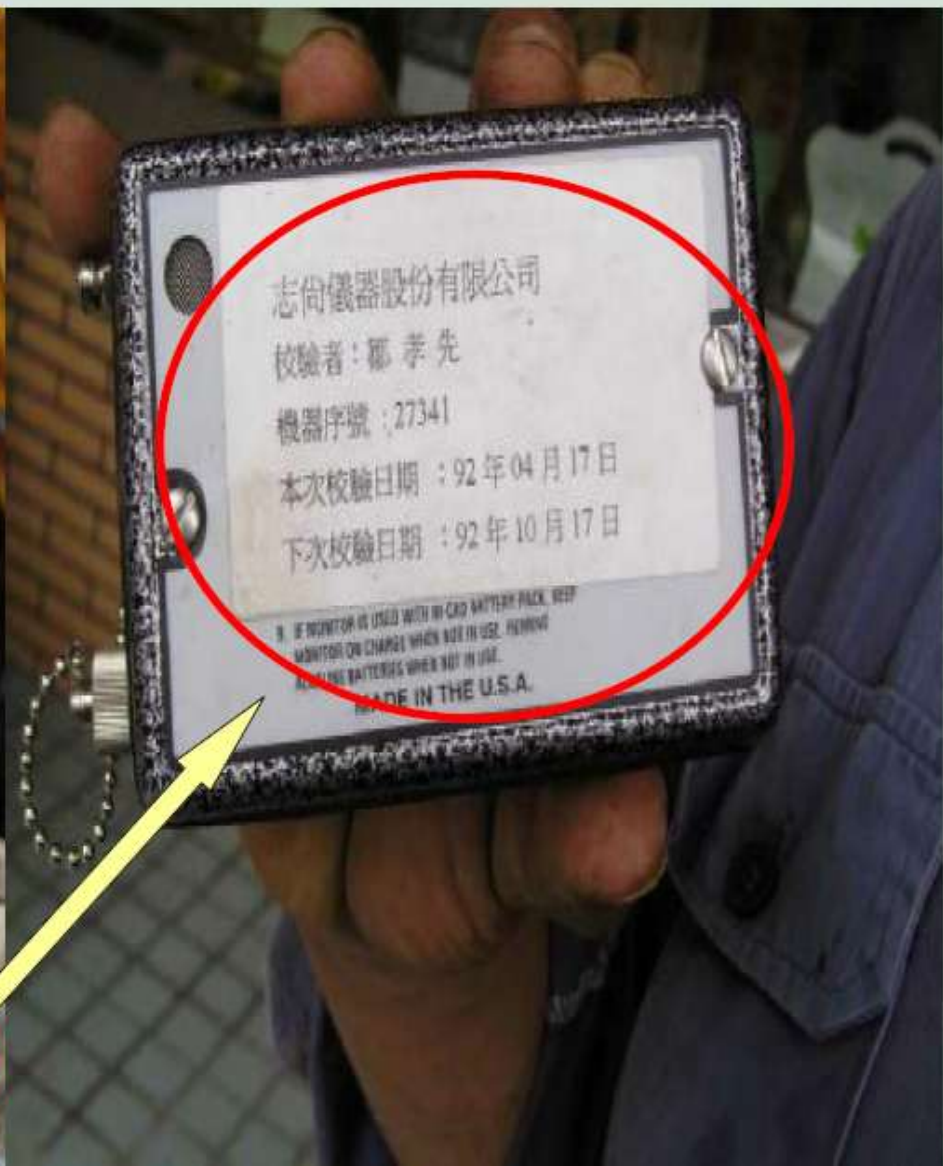 志尚儀器股份有限公司
校驗者：鄒 孝 先
機器序號 :27341
本次校驗日期 ：92 年 04 月 17 日
下次校驗日期 ：92 年 10 月 17 日
IF MONITOR IS USED WITH NI-CAD BATTERY PACK, KEEP
MONITOR ON CHARGE WHEN NOT IN USE. REMOVE
ALKALINE BATTERIES WHEN NOT IN USE.
MADE IN THE U.S.A.